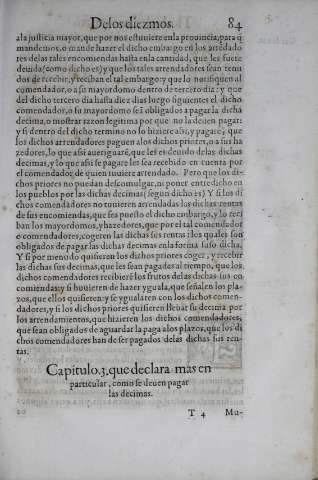 Delos diezmos. 84
a la justicia mayor, que por nos estuuiere en la prouincia, para q̃
mandemos, o mande hazer el dicho embargo en los arrẽdado
res delas tales encomiendas hasta en la cantidad, que les fuere
deuida (como dicho es) y que los tales arrendadores sean teni
dos de recebir, y reciban el tal embargo: y que lo notifiquen al
comendador, o a su mayordomo dentro de tercero dia: y que
del dicho tercero dia hasta diez dias luego siguientes el dicho
comendador, o su mayordomo seã obligados a pagar la dicha
decima, o mostrar razon legitima por que no la deuen pagar:
y si dentro del dicho termino no lo hiziere assi, y pagare, que
los dichos arrendadores paguen a los dichos priores, o a sus ha
zedores, lo que assi aueriguarẽ, que les es deuido delas dichas
decimas, y lo que assi se pagare les sea recebido en cuenta por
el comendador, de quien tuuiere arrendado. Pero que los di-
chos priores no puedan descomulgar, ni poner entredicho en
los pueblos por las dichas decimas (segun dicho es) Y si los di
chos comendadores no tuuieren arrendadas las dichas rentas
de sus encomiendas, que sea puesto el dicho embargo, y lo reci
ban los mayordomos, y hazedores, que por el tal comendador
o comendadores, cogeren las dichas sus rentas: los quales son
obligados de pagar las dichas decimas en la forma suso dicha.
Y si por menudo quisieren los dichos priores coger, y recebir
las dichas sus decimas, que les sean pagadas al tiempo, que los
dichos comendadores recibierẽ los frutos delas dichas sus en
comiendas: y si huuieren de hazer yguala, que señalen los pla-
zos, que ellos quisieren: y se ygualaren con los dichos comen-
dadores, y si los dichos priores quisieren lleuar su decima por
los arrendamientos, que hizieren los dichos comendadores,
que sean obligados de aguardar la paga a los plazos, que los di
chos comendadores han de ser pagados delas dichas sus ren-
tas.
Capitulo. 3. que declara mas en
particular, como se deuen pagar
las decimas.
T 4 Mu-